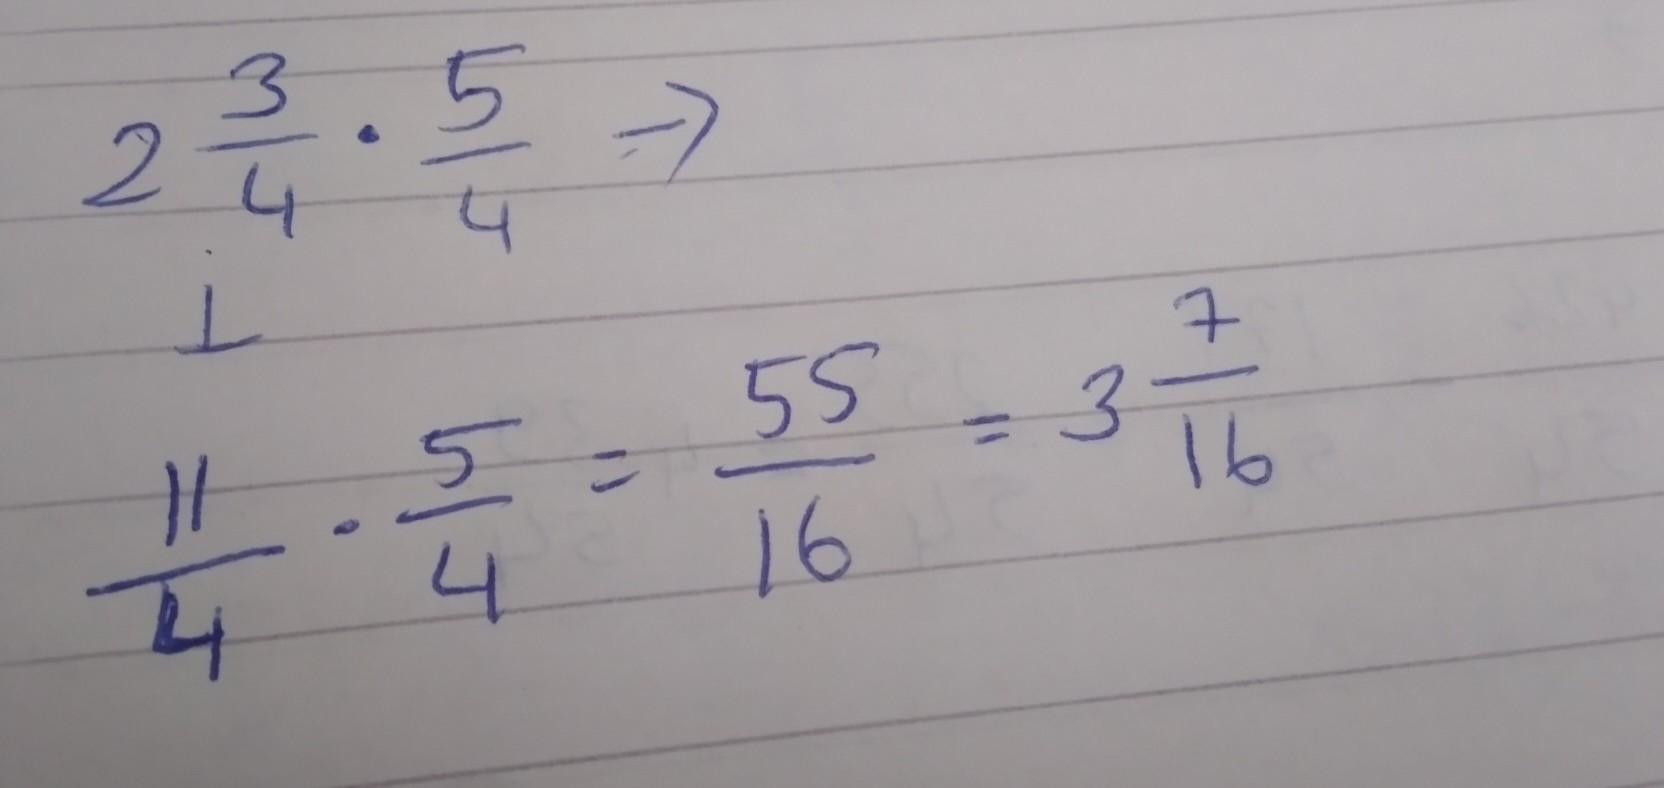 2 3/4 · 5/4 →
↓
11/4 · 5/4 = 55/16 = 3 7/16